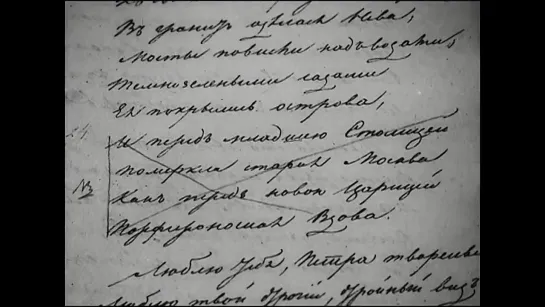 Въ гранитъ одѣлася Нева,
Мосты повисли надъ водами,
Темнозелеными садами
Ея покрылись острова,
24 И передъ младшею Столицей
Померкла старая Москва
№ Какъ передъ новой Царицей
Порфироносная Вдова.
Люблю тебя, Петра творенье
Люблю твой строгій, стройный видъ